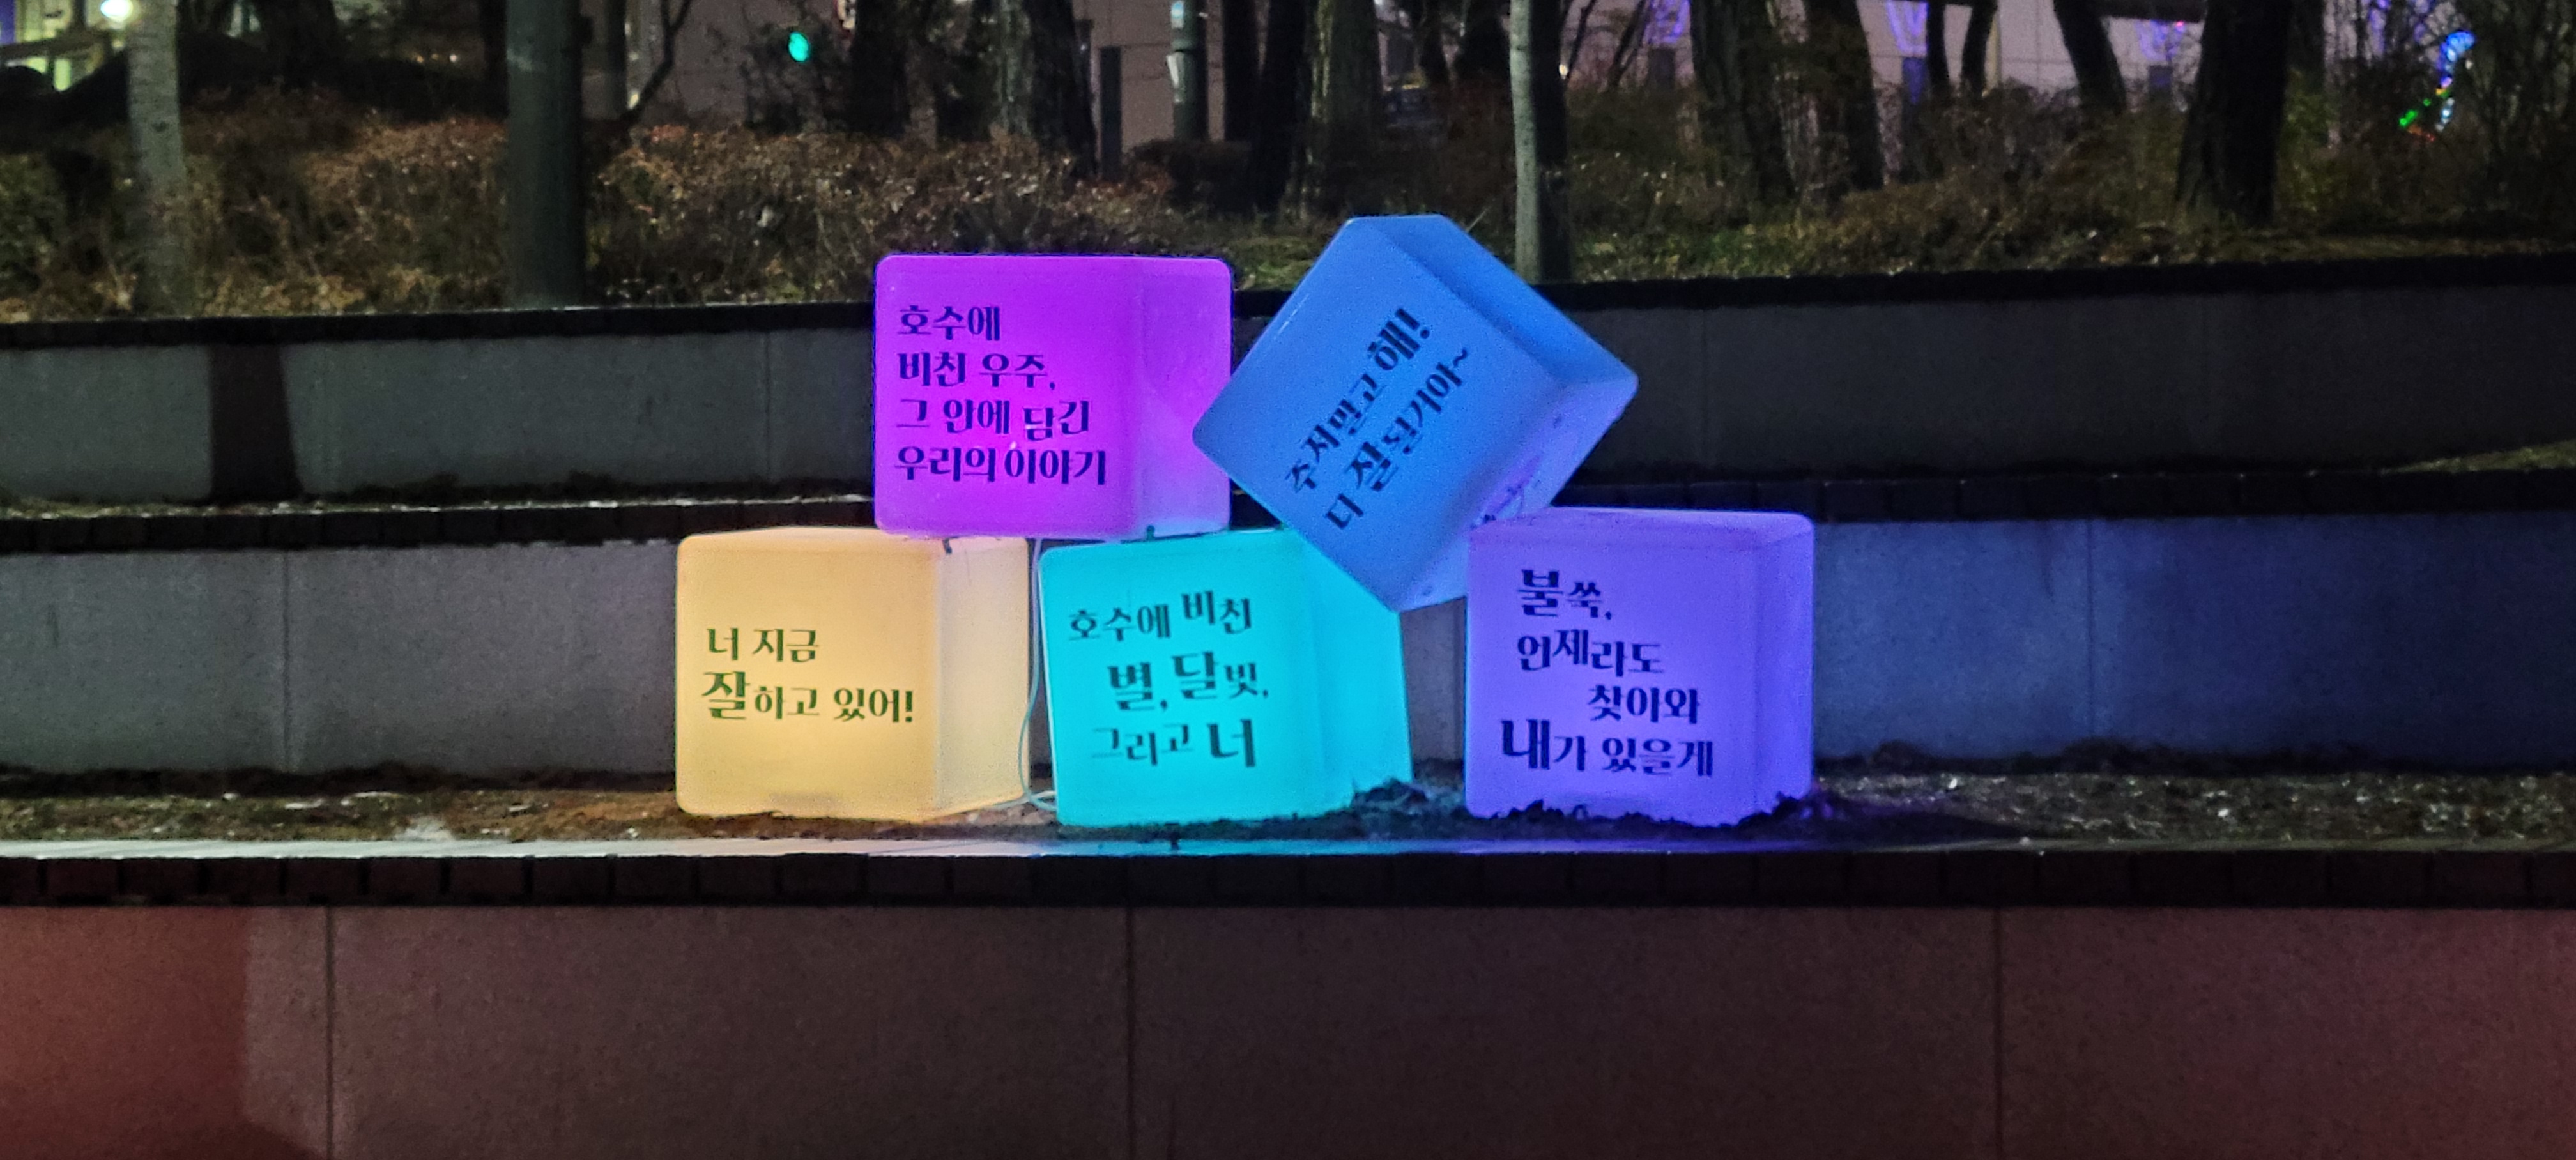 호수에
비친 우주,
그 안에 담긴
우리의 이야기
주저말고 해!
다 잘될거야~
너 지금
잘하고 있어!
호수에 비친
별, 달빛,
그리고 너
불쑥,
언제라도
찾아와
내가 있을게